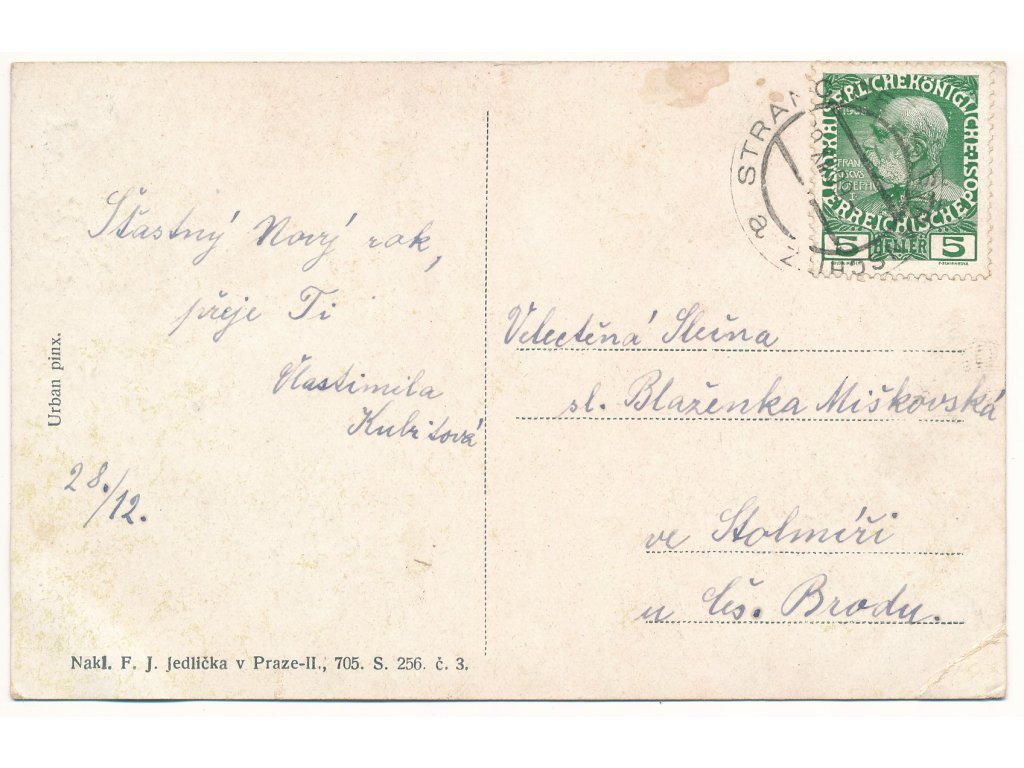 Šťastný Nový rok,
přeje Ti
Vlastimila
Kubitová
28./12.
Urban pinx.
Nakl. F. J. Jedlička v Praze-II., 705. S. 256. č. 3.
KAISERLICHE KÖNIGLICHE
ÖSTERREICHISCHE POST
FRANCISCUS
JOSEPH I
5 HELLER 5
a
Velectěná Slečna
sl. Blaženka Miškovská
ve Stolmíři
u Čes. Brodu.